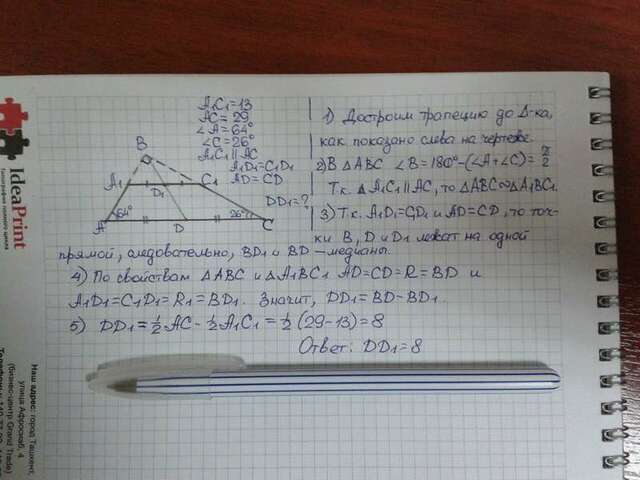 A₁C₁=13
AC=29
∠A=64°
∠C=26°
A₁C₁ ∥ AC
A₁D₁=C₁D₁
AD=CD
DD₁=?
B
A₁
D₁
C₁
64°
26°
A
D
C
1) Достроим трапецию до Δ-ка,
как показано слева на чертеже.
2) В ΔABC ∠B=180°-(∠A+∠C)=π/2
Т.к. A₁C₁ ∥ AC, то ΔABC∾ΔA₁BC₁.
3) Т.к. A₁D₁=C₁D₁ и AD=CD, то точ-
ки B, D и D₁ лежат на одной
прямой, следовательно, BD₁ и BD – медианы.
4) По свойствам ΔABC и ΔA₁BC₁ AD=CD=R=BD и
A₁D₁=C₁D₁=R₁=BD₁. Значит, DD₁=BD-BD₁.
5) DD₁=½AC-½A₁C₁=½(29-13)=8
Ответ: DD₁=8
IdeaPrint
Типография полного цикла
Наш адрес: город Ташкент,
улица Афросиаб, 4
(бизнес-центр Grand Trade)